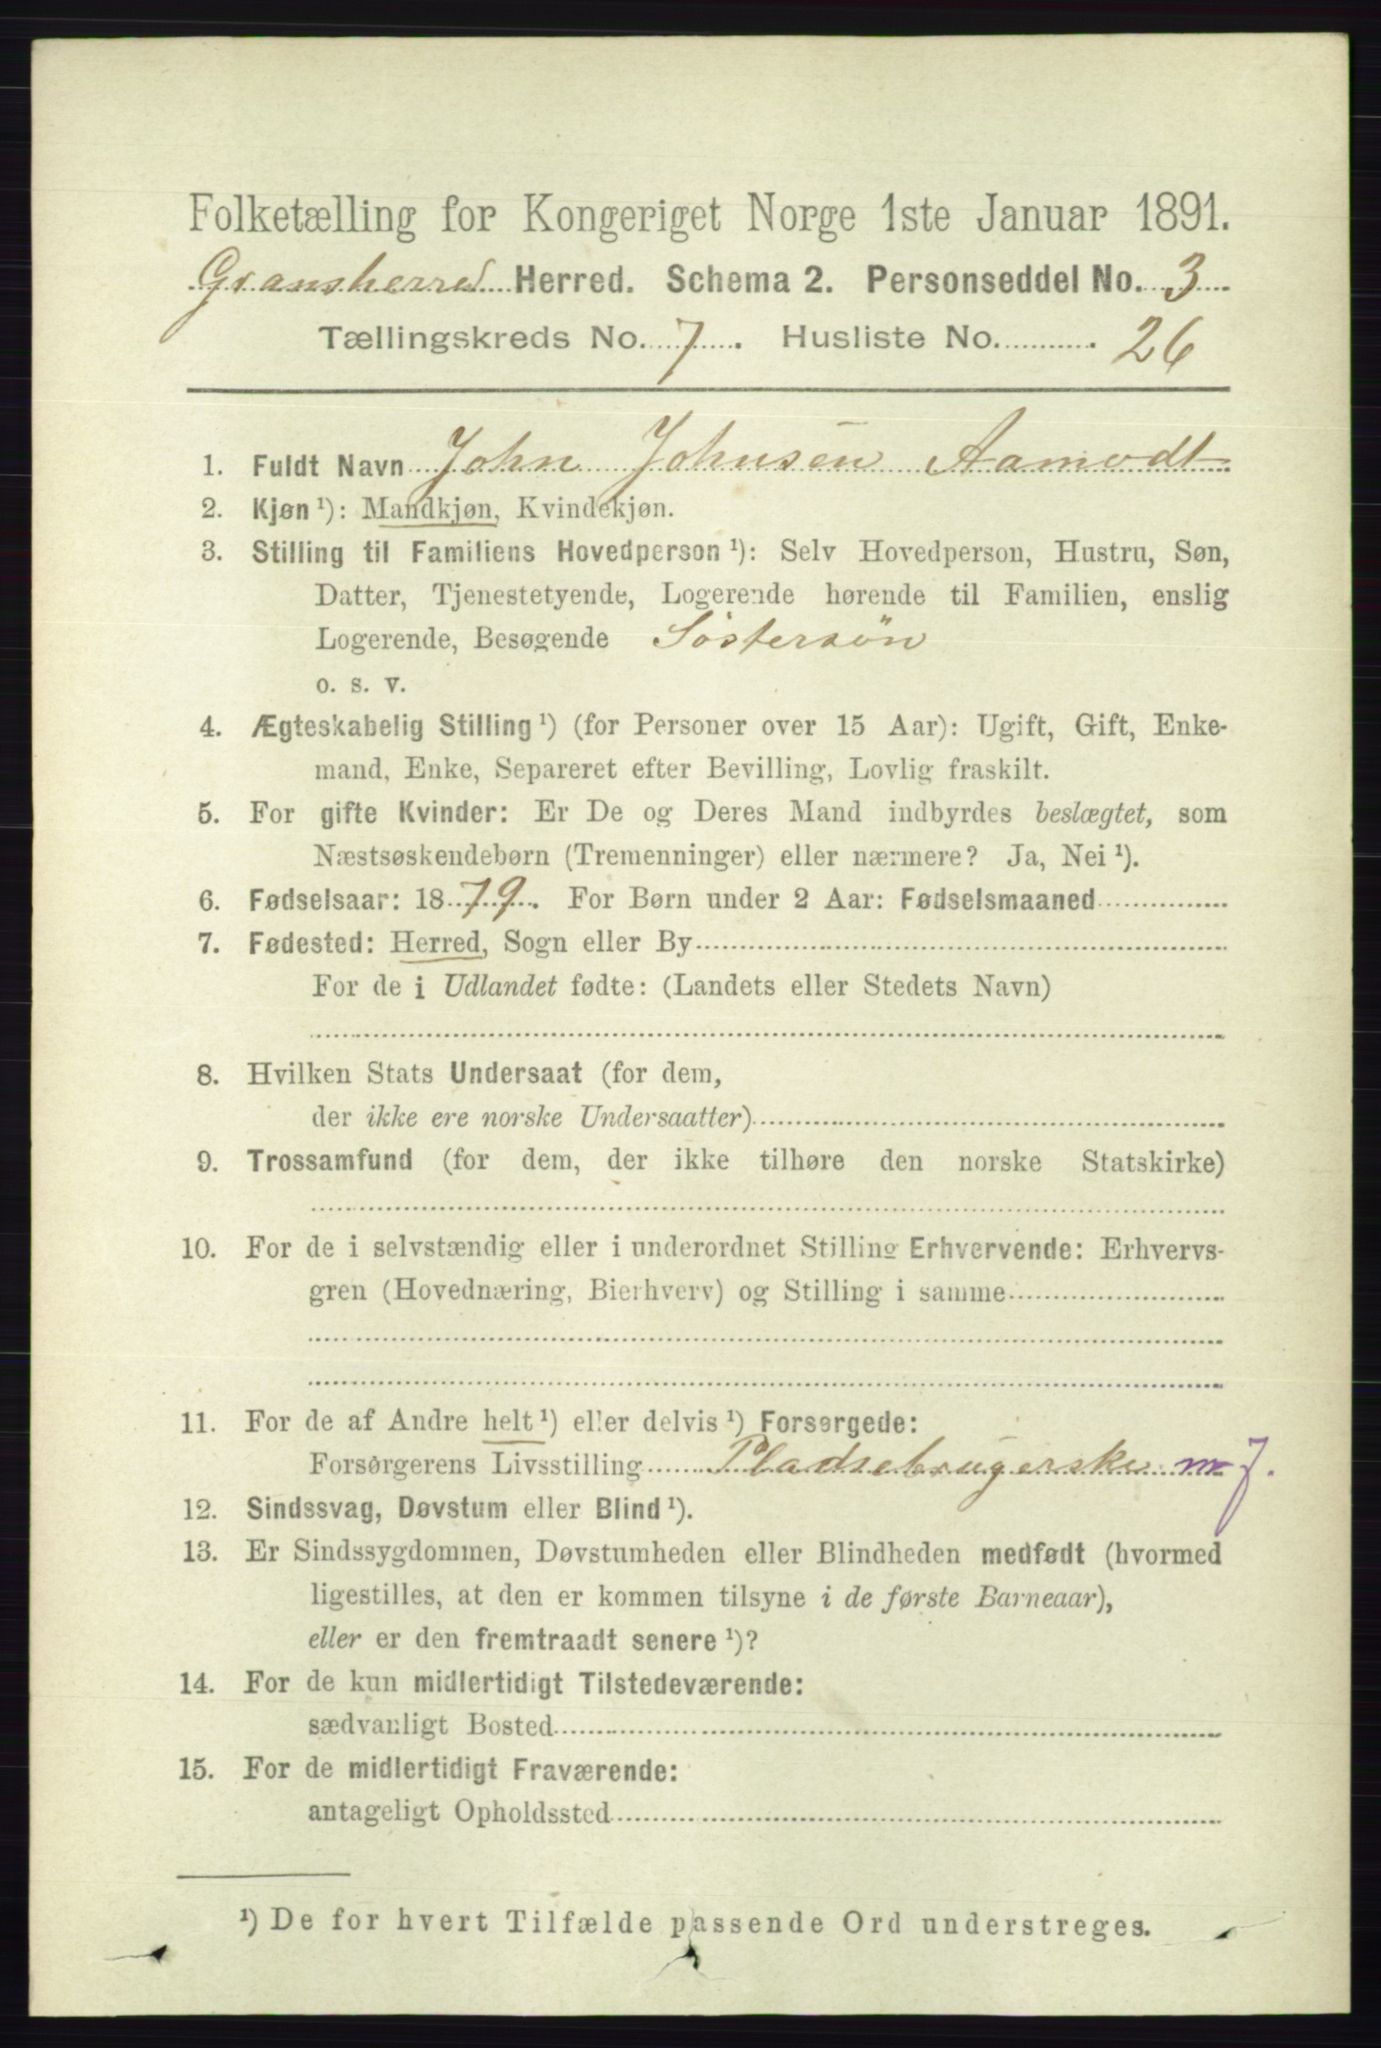 Folketælling for Kongeriget Norge 1ste Januar 1891.
Gransherred Herred. Schema 2. Personseddel No. 3
Tællingskreds No. 7. Husliste No. 26
1. Fuldt Navn John Johnsen Aamodt
2. Kjøn ¹): Mandkjøn, Kvindekjøn.
3. Stilling til Familiens Hovedperson ¹): Selv Hovedperson, Hustru, Søn,
Datter, Tjenestetyende, Logerende hørende til Familien, enslig
Logerende, Besøgende Söstersön
o. s. v.
4. Ægteskabelig Stilling ¹) (for Personer over 15 Aar): Ugift, Gift, Enke-
mand, Enke, Separeret efter Bevilling, Lovlig fraskilt.
5. For gifte Kvinder: Er De og Deres Mand indbyrdes beslægtet, som
Næstsøskendebørn (Tremenninger) eller nærmere? Ja, Nei ¹).
6. Fødselsaar: 1879. For Børn under 2 Aar: Fødselsmaaned
7. Fødested: Herred, Sogn eller By
For de i Udlandet fødte: (Landets eller Stedets Navn)
8. Hvilken Stats Undersaat (for dem,
der ikke ere norske Undersaatter)
9. Trossamfund (for dem, der ikke tilhøre den norske Statskirke)
10. For de i selvstændig eller i underordnet Stilling Erhvervende: Erhvervs-
gren (Hovednæring, Bierhverv) og Stilling i samme
11. For de af Andre helt ¹) eller delvis ¹) Forsørgede:
Forsørgerens Livsstilling Pladsebrugerske m J.
12. Sindssvag, Døvstum eller Blind ¹).
13. Er Sindssygdommen, Døvstumheden eller Blindheden medfødt (hvormed
ligestilles, at den er kommen tilsyne i de første Barneaar),
eller er den fremtraadt senere ¹)?
14. For de kun midlertidigt Tilstedeværende:
sædvanligt Bosted
15. For de midlertidigt Fraværende:
antageligt Opholdssted
¹) De for hvert Tilfælde passende Ord understreges.